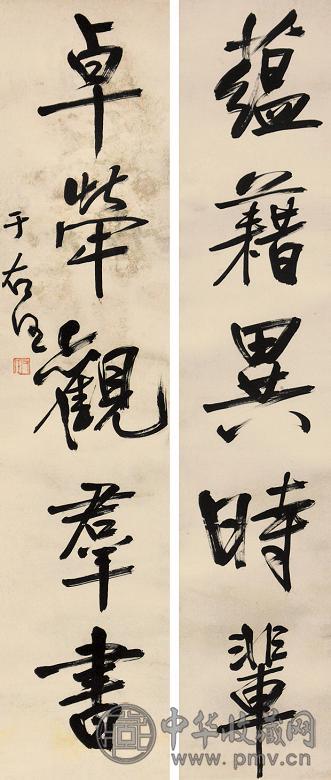 蕴藉異時輩
卓犖觀羣書
于右任
中华收藏网
www.pmv.cn